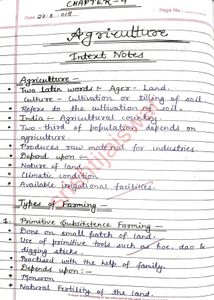 CHAPTER-4
Date 27.8.018
Page No.
Agriculture
Intext Notes
Agriculture -
Two Latin words - Ager - Land.
Culture - Cultivation or tilling of soil
Refers to the cultivation of soil.
India - Agricultural country
Two-third of population depends on
agriculture.
Produces raw material for industries
Depend upon :-
Nature of land
Climatic condition
Available irrigational facilities.
Types of Farming -
1. Primitive Subsistence Farming -
Done on small patch of land.
Use of primitive tools such as hoe, dao &
digging sticks.
Practised with the help of family.
Depends upon :-
Monsoon
Natural fertility of the land.